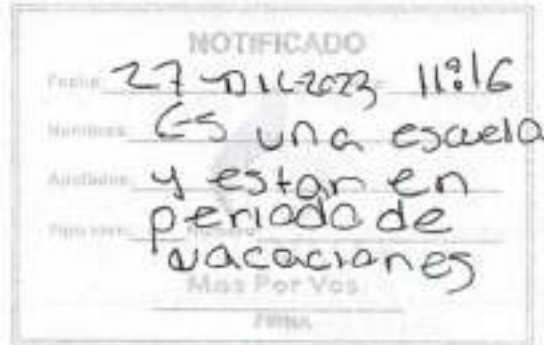 NOTIFICADO
Fecha: 27-DIC-2023 11:16
Nombres Es una escuela
Apellidos y estan en
periodo de
vacaciones
Mas Por Vos
FIRMA